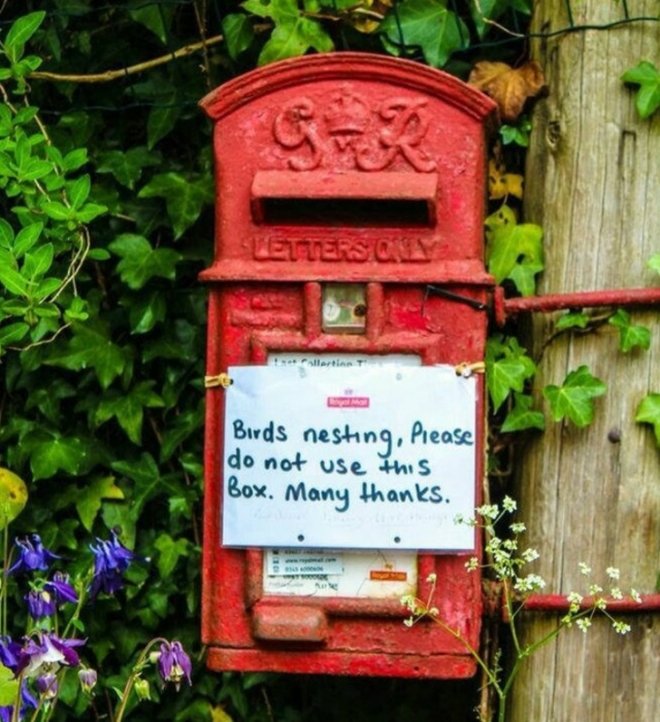 G VI R
LETTERS ONLY
Last Collection Time
Royal Mail
Birds nesting, Please
do not use this
Box. Many thanks.
www.royalmail.com
0345 6000606
Royal Mail